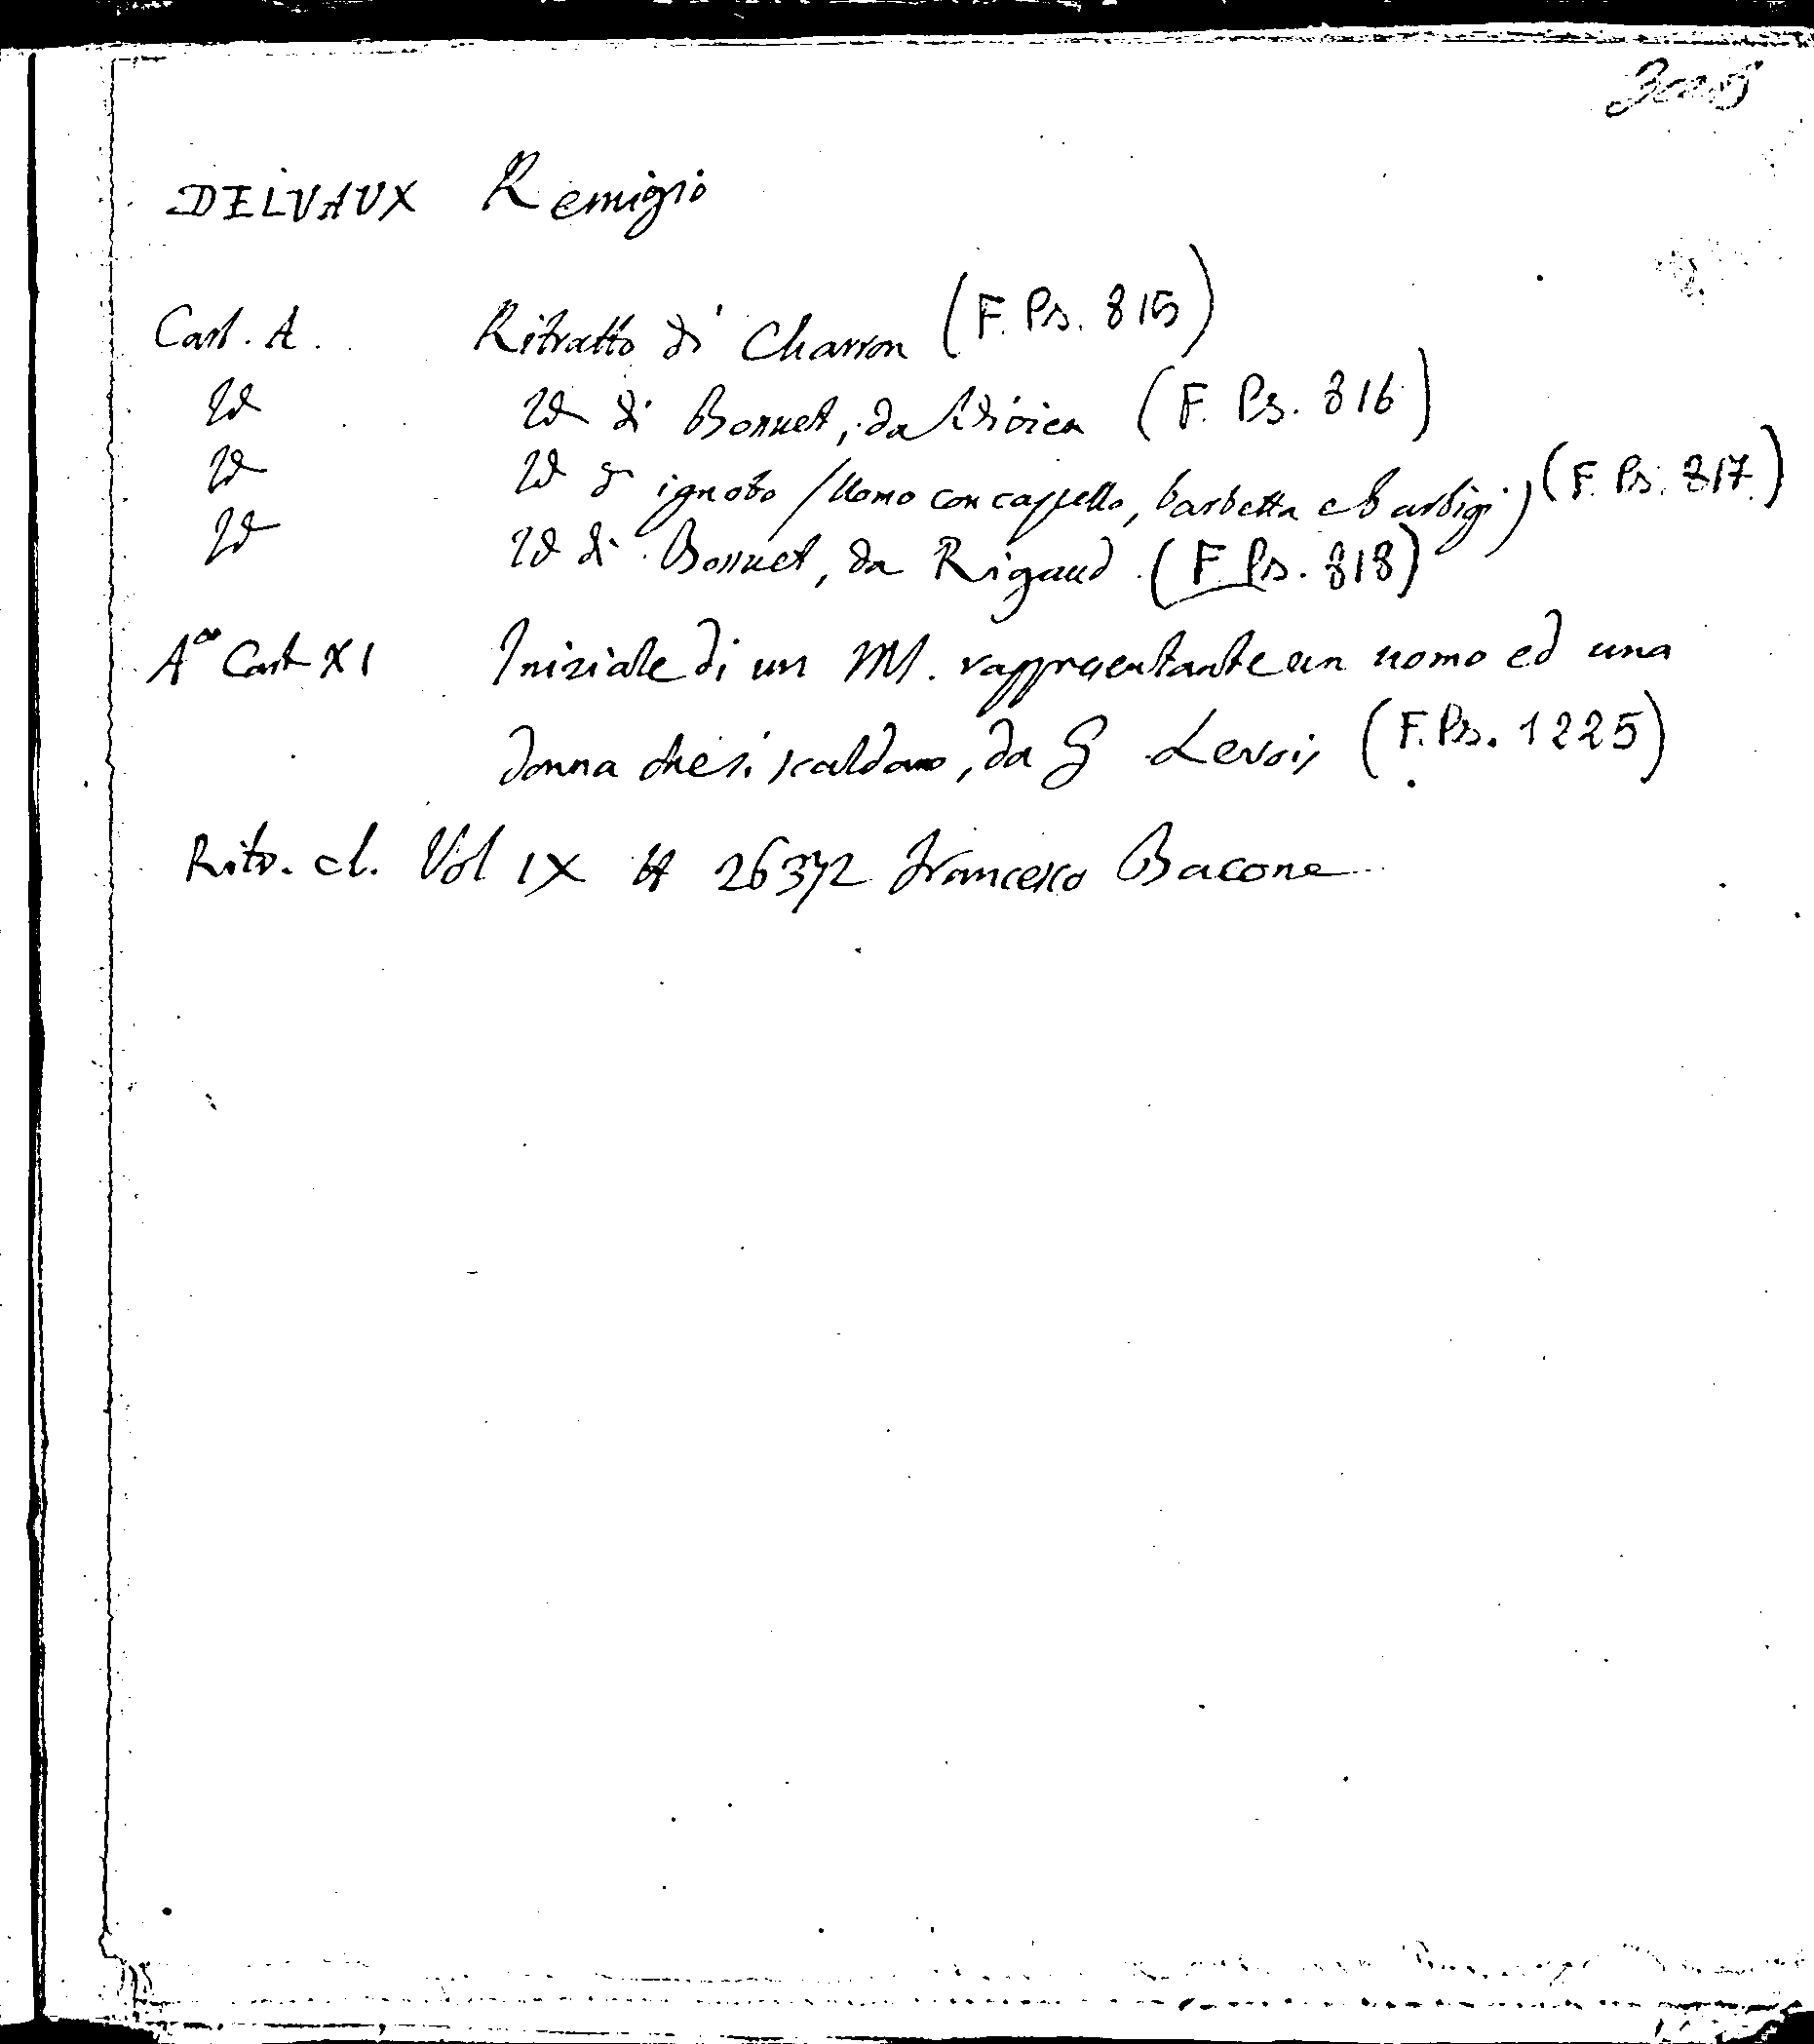 DELVAUX Remigio
Cart. A. Ritratto di Charron (F. Ps. 815)
Id Id di Bossuet, da (F. Ps. 816)
Id Id di ignoto (Uomo con cappello, barbetta e barbigi) (F. Ps. 817)
Id Id di Bossuet, da Rigaud (F. Ps. 818)
Cart XI Iniziale di un MS. rappresentante un uomo ed una
donna che si scaldano, da G (F. Ps. 1225)
Ritr. cl. Vol IX 26372 Francesco Bacone